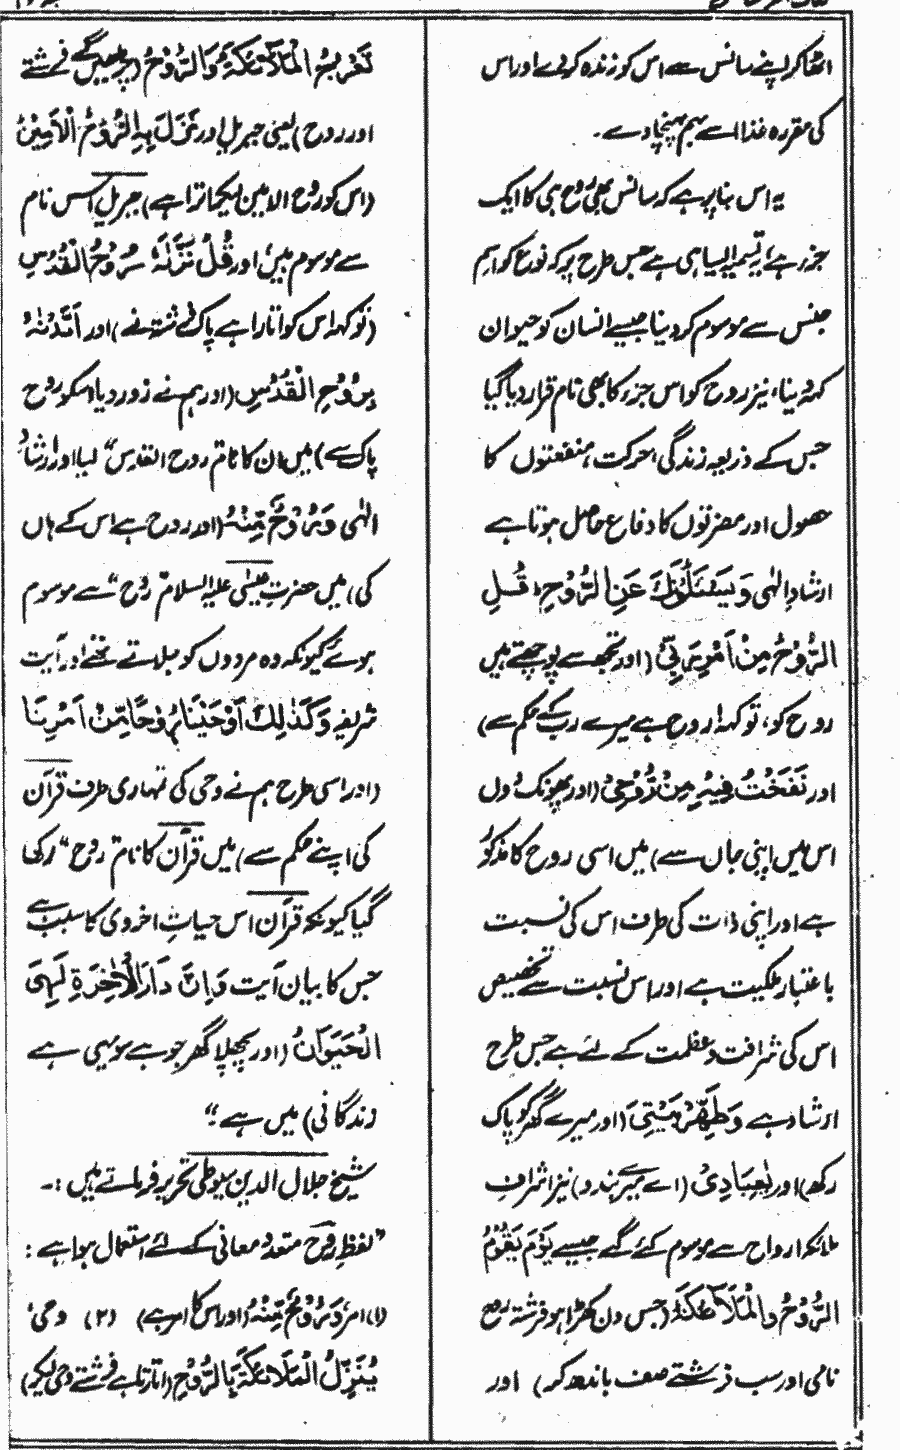 اٹھا کر اپنے سانس سے اس کو زندہ کر دے اور اس
کی مقررہ غذا اسے بہم پہنچا دے۔
یہ اس بنا پر ہے کہ سانس بھی روح ہی کا ایک
جزء ہے، یہ تسمیہ ایسا ہی ہے جس طرح پر کہ نوع کو اسم
جنس سے موسوم کر دینا جیسے انسان کو حیوان
کہہ دینا، نیز روح کو اس جزء کا بھی نام قرار دیا گیا
جس کے ذریعہ زندگی، حرکت، منفعتوں کا
حصول اور مضرتوں کا دفاع حاصل ہوتا ہے
ارشاد الٰہی وَيَسْئَلُوْنَكَ عَنِ الرُّوْحِ، قُلِ
الرُّوْحُ مِنْ اَمْرِ رَبِّيْ (اور تجھ سے پوچھتے ہیں
روح کو، تو کہہ روح ہے میرے رب کے حکم سے)
اور نَفَخْتُ فِيْهِ مِنْ رُّوْحِيْ (اور پھونک دوں
اس میں اپنی جان سے) میں اسی روح کا مذکور
ہے اور اپنی ذات کی طرف اس کی نسبت
باعتبار ملکیت ہے اور اس نسبت سے تخصیص
اس کی شرافت و عظمت کے لئے ہے جس طرح
ارشاد ہے وَطَهِّرْ بَيْتِيَ (اور میرے گھر کو پاک
رکھ) اور يٰعِبَادِيْ (اے میرے بندو) نیز اشراف
ملائکہ ارواح سے موسوم کئے گئے جیسے يَوْمَ يَقُوْمُ
الرُّوْحُ وَالْمَلَآئِكَةُ (جس دن کھڑا ہو فرشتہ روح
نامی اور سب فرشتے صف باندھ کر) اور
تَعْرُجُ الْمَلَآئِكَةُ وَالرُّوْحُ (چڑھیں گے فرشتے
اور روح) یعنی جبریل اور نَزَلَ بِهِ الرُّوْحُ الْاَمِيْنُ
(اس کو روح الامین لیکر اترا ہے) جبریل اس نام
سے موسوم ہیں اور قُلْ نَزَّلَهٗ رُوْحُ الْقُدُسِ
(تو کہہ اس کو اتارا ہے پاک فرشتہ نے) اور اَيَّدْنٰهُ
بِرُوْحِ الْقُدُسِ (اور ہم نے زور دیا اسکو روح
پاک سے) میں ان کا نام روح القدس" لیا اور ارشاد
الٰہی وَرُوْحٌ مِّنْهُ (اور روح ہے اس کے ہاں
کی) میں حضرت عیسٰی علیہ السلام "روح" سے موسوم
ہوئے کیونکہ وہ مردوں کو جلاتے تھے اور آیت
شریفہ وَكَذٰلِكَ اَوْحَيْنَا رُوْحًا مِّنْ اَمْرِنَا
(اور اسی طرح ہم نے وحی کی تمہاری طرف قرآن
کی اپنے حکم سے) میں قرآن کا نام "روح" رکھا
گیا کیونکہ قرآن اس حیاتِ اخروی کا سبب ہے
جس کا بیان آیت وَاِنَّ دَارَ الْاٰخِرَةِ لَهِيَ
الْحَيَوَانُ (اور پچھلا گھر جو ہے سو یہی ہے
زندگانی) میں ہے۔"
شیخ جلال الدین سیوطی تحریر فرماتے ہیں :۔
"لفظِ روح متعدد معانی کے لئے استعمال ہوا ہے :
(۱) امر، وَرُوْحٌ مِّنْهُ (اور اس کا امر ہے) (۲) وحی،
يُنَزِّلُ الْمَلَآئِكَةَ بِالرُّوْحِ (اتارتا ہے فرشتے وحی لیکر)